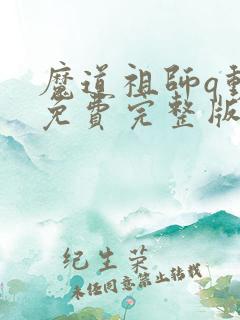 魔道祖師q動
免費完整版
纪生荣
未经同意禁止转载